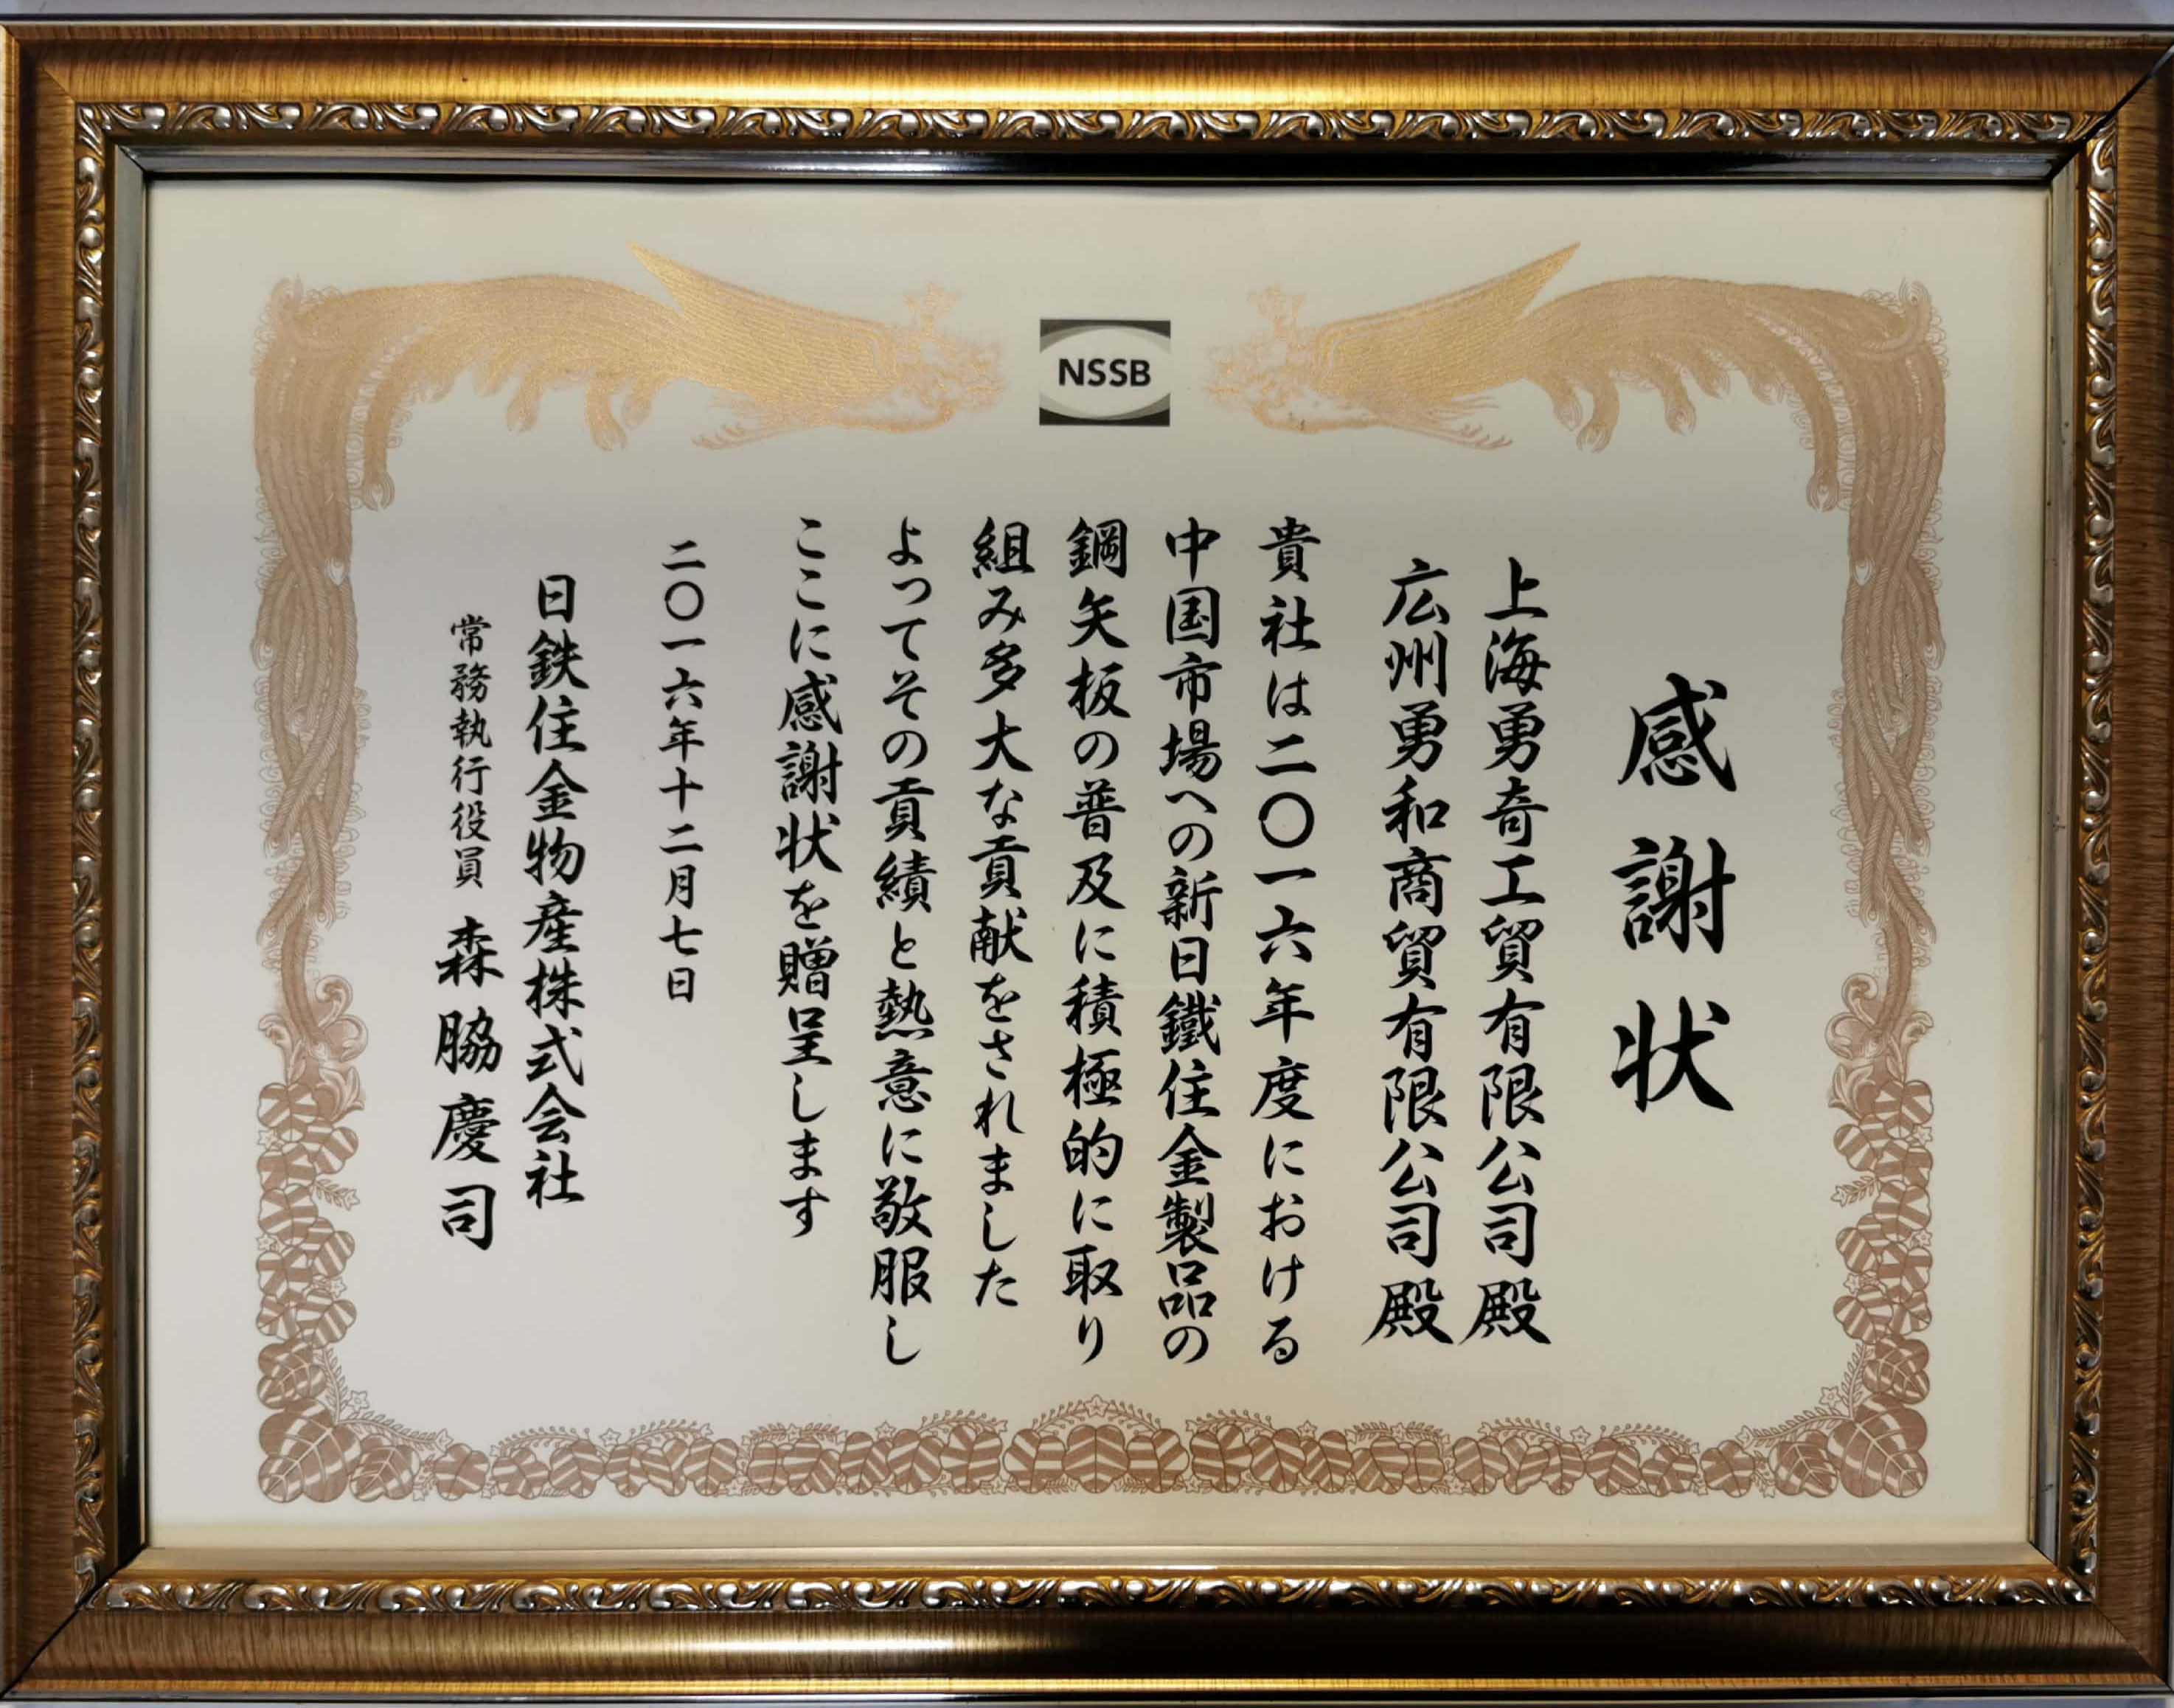 NSSB
感謝状
上海勇奇工貿有限公司殿
広州勇和商貿有限公司殿
貴社は二〇一六年度における
中国市場への新日鐵住金製品の
鋼矢板の普及に積極的に取り
組み多大な貢献をされました
よってその貢績と熱意に敬服し
ここに感謝状を贈呈します
二〇一六年十二月七日
日鉄住金物産株式会社
常務執行役員 森脇慶司